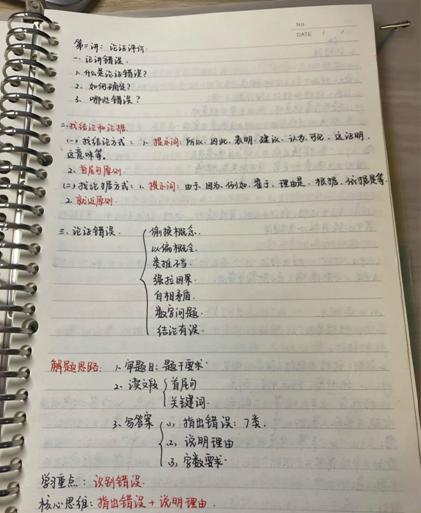 No.
DATE / /
第二讲：论证评价
一、论证错误.
1. 什么是论证错误？
2. 如何确定？
3. 哪些错误？
二、找结论和论据.
(一) 找结论方式：1、提示词：所以、因此、表明、建议、认为、可见、这证明、
这意味着.
2. 首尾句原则.
(二) 找论据方式：1、提示词：由于、因为、例如、鉴于、理由是、根据、依据是等.
2. 就近原则.
三、论证错误.
偷换概念.
以偏概全.
类推不当.
强拉因果.
自相矛盾.
数字问题.
结论有误.
解题思路：1、审题目：题干要求.
2、读文段 首尾句
关键词.
3、写答案 (1)、指出错误：7类.
(2)、说明理由
(3)、字数要求.
学习重点：识别错误.
核心思维：指出错误+说明理由.